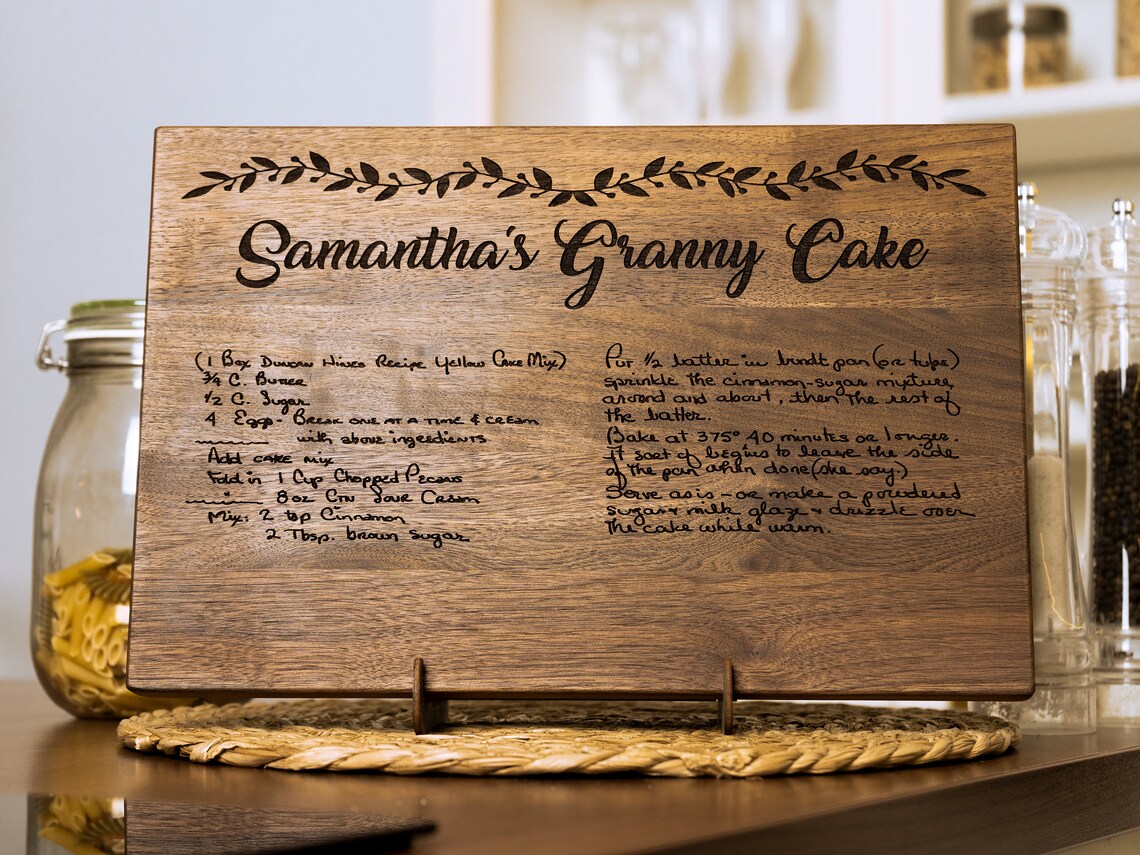 Samantha's Granny Cake
(1 Box Duncan Hines Recipe Yellow Cake Mix)
3/4 C. Butter
1/2 C. Sugar
4 Eggs - Break one at a time & cream
with above ingredients
Add cake mix
Fold in 1 Cup Chopped Pecans
8 oz Ctn Sour Cream
Mix: 2 tsp Cinnamon
2 Tbsp. brown sugar
Put 1/2 batter in bundt pan (or tube)
sprinkle the cinnamon-sugar mixture
around and about, then the rest of
the batter.
Bake at 375° 40 minutes or longer.
It sort of begins to leave the side
of the pan when done (she say)
Serve as is - or make a powdered
sugar & milk glaze & drizzle over
the cake while warm.